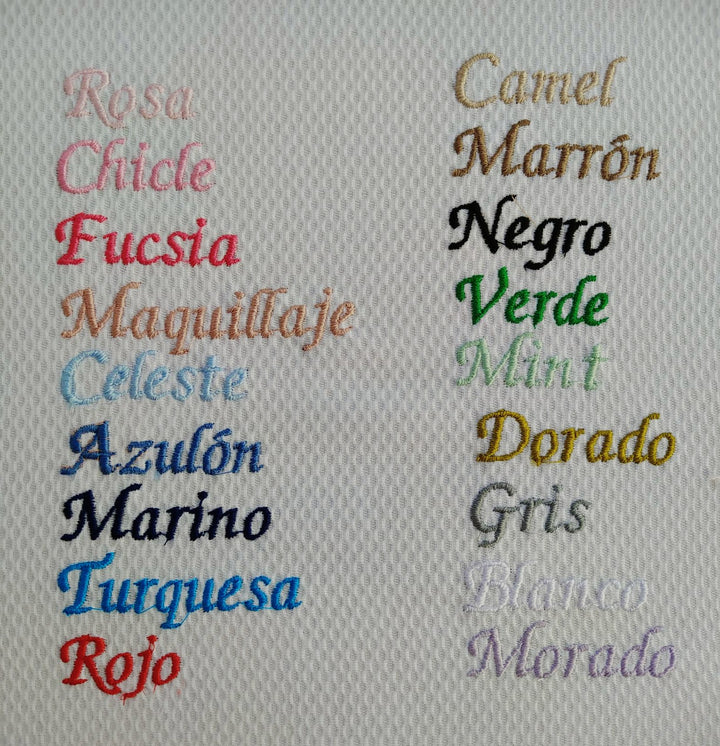 Rosa
Chicle
Fucsia
Maquillaje
Celeste
Azulón
Marino
Turquesa
Rojo
Camel
Marrón
Negro
Verde
Mint
Dorado
Gris
Blanco
Morado